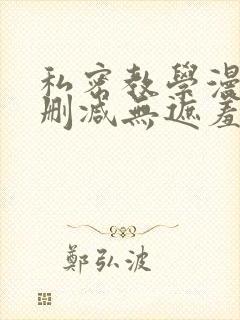 私密教學漫
刪減無遮羞
鄭弘波